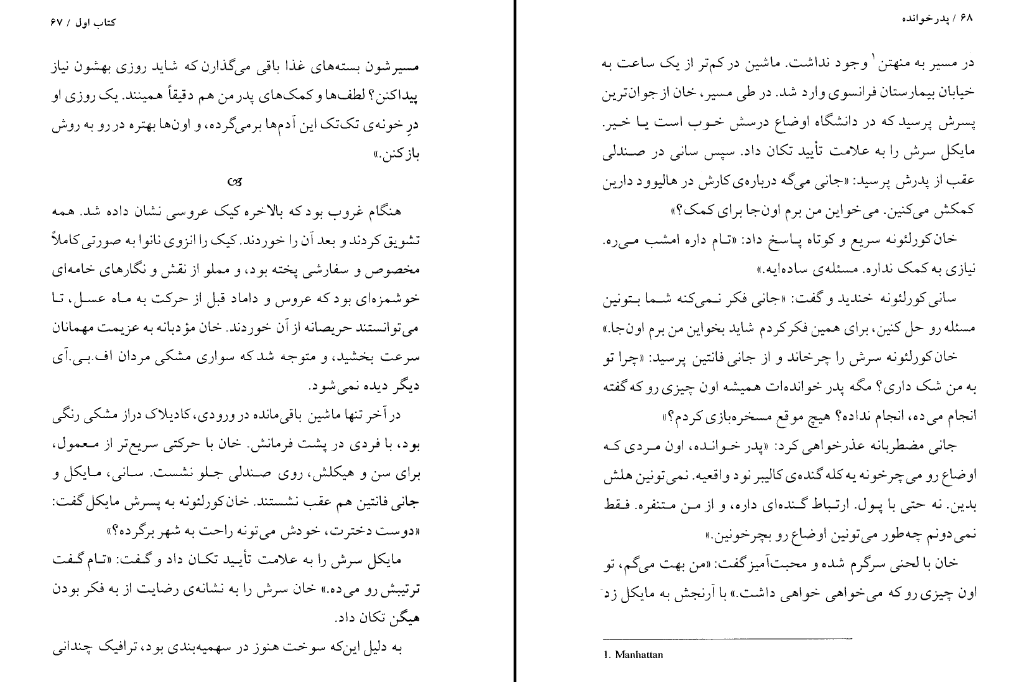 کتاب اول / ۶۷
مسیرشون بسته‌های غذا باقی می‌گذارن که شاید روزی بهشون نیاز
پیدا کنن؟ لطف‌ها و کمک‌های پدر من هم دقیقاً همینند. یک روزی او
درِ خونه‌ی تک‌تک این آدم‌ها برمی‌گرده، و اون‌ها بهتره در رو به روش
باز کنن.»
هنگام غروب بود که بالاخره کیک عروسی نشان داده شد. همه
تشویق کردند و بعد آن را خوردند. کیک را انزوی نانوا به صورتی کاملاً
مخصوص و سفارشی پخته بود، و مملو از نقش و نگارهای خامه‌ای
خوشمزه‌ای بود که عروس و داماد قبل از حرکت به ماه عسل، تا
می‌توانستند حریصانه از آن خوردند. خان مؤدبانه به عزیمت مهمانان
سرعت بخشید، و متوجه شد که سواری مشکی مردان اف.بی.آی
دیگر دیده نمی‌شود.
در آخر تنها ماشین باقی‌مانده در ورودی، کادیلاک دراز مشکی رنگی
بود، با فردی در پشت فرمانش. خان با حرکتی سریع‌تر از معمول،
برای سن و هیکلش، روی صندلی جلو نشست. سانی، مایکل و
جانی فانتین هم عقب نشستند. خان کورلئونه به پسرش مایکل گفت:
«دوست دخترت، خودش می‌تونه راحت به شهر برگرده؟»
مایکل سرش را به علامت تأیید تکان داد و گفت: «تام گفت
ترتیبش رو می‌ده.» خان سرش را به نشانه‌ی رضایت از به فکر بودن
هیگن تکان داد.
به دلیل این‌که سوخت هنوز در سهمیه‌بندی بود، ترافیک چندانی
۶۸ / پدرخوانده
در مسیر به منهتن۱ وجود نداشت. ماشین در کم‌تر از یک ساعت به
خیابان بیمارستان فرانسوی وارد شد. در طی مسیر، خان از جوان‌ترین
پسرش پرسید که در دانشگاه اوضاع درسش خوب است یا خیر.
مایکل سرش را به علامت تأیید تکان داد. سپس سانی در صندلی
عقب از پدرش پرسید: «جانی می‌گه درباره‌ی کارش در هالیوود دارین
کمکش می‌کنین. می‌خواین من برم اون‌جا برای کمک؟»
خان کورلئونه سریع و کوتاه پاسخ داد: «تام داره امشب می‌ره.
نیازی به کمک نداره. مسئله‌ی ساده‌ایه.»
سانی کورلئونه خندید و گفت: «جانی فکر نمی‌کنه شما بتونین
مسئله رو حل کنین، برای همین فکر کردم شاید بخواین من برم اون‌جا.»
خان کورلئونه سرش را چرخاند و از جانی فانتین پرسید: «چرا تو
به من شک داری؟ مگه پدر خوانده‌ات همیشه اون چیزی رو که گفته
انجام می‌ده، انجام نداده؟ هیچ موقع مسخره‌بازی کردم؟»
جانی مضطربانه عذرخواهی کرد: «پدر خوانده، اون مردی که
اوضاع رو می‌چرخونه یه کله گنده‌ی کالیبر نود واقعیه. نمی‌تونین هلش
بدین. نه حتی با پول. ارتباط گنده‌ای داره، و از من متنفره. فقط
نمی‌دونم چه‌طور می‌تونین اوضاع رو بچرخونین.»
خان با لحنی سرگرم شده و محبت‌آمیز گفت: «من بهت می‌گم، تو
اون چیزی رو که می‌خواهی خواهی داشت.» با آرنجش به مایکل زد
1. Manhattan